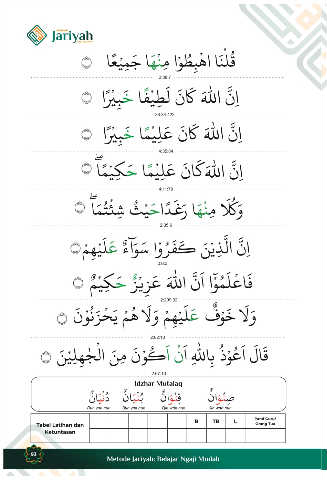 Jariyah
قُلْنَا اهْبِطُوْا مِنْهَا جَمِيْعًا
اِنَّ اللّٰهَ كَانَ لَطِيْفًا خَبِيْرًا
اِنَّ اللّٰهَ كَانَ عَلِيْمًا خَبِيْرًا
اِنَّ اللّٰهَ كَانَ عَلِيْمًا حَكِيْمًا
وَكُلَا مِنْهَا رَغَدًا حَيْثُ شِئْتُمَا
اِنَّ الَّذِيْنَ كَفَرُوْا سَوَاۤءٌ عَلَيْهِمْ
فَاعْلَمُوْٓا اَنَّ اللّٰهَ عَزِيْزٌ حَكِيْمٌ
وَلَا خَوْفٌ عَلَيْهِمْ وَلَا هُمْ يَحْزَنُوْنَ
قَالَ اَعُوْذُ بِاللّٰهِ اَنْ اَكُوْنَ مِنَ الْجٰهِلِيْنَ
Idzhar Mutalaq
صِنْوَانٌ قِنْوَانٌ بُنْيَانٌ دُنْيَانٌ
Tabel Latihan dan Ketuntasan
B TB L
93
Metode Jariyah: Belajar Ngaji Mudah